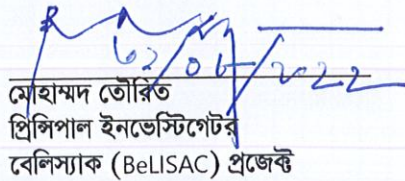 ০২/০৬/২০২২
মোহাম্মদ তৌরিত
প্রিন্সিপাল ইনভেস্টিগেটর
বেলিস্যাক (BeLISAC) প্রজেক্ট